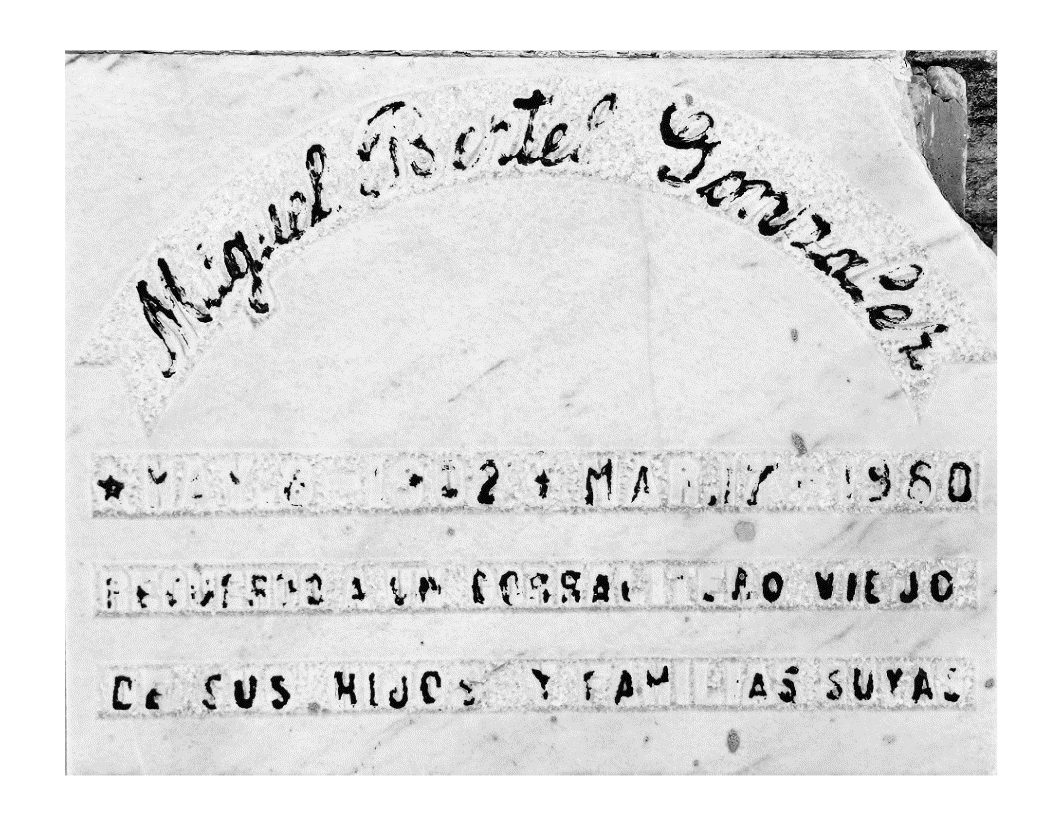 Miguel Bertel Gonzalez
★ MAY. 12 ✝ MAR. 17 - 1960
RECUERDO A UN CORRALERO VIEJO
DE SUS HIJOS Y FAMILIAS SUYAS